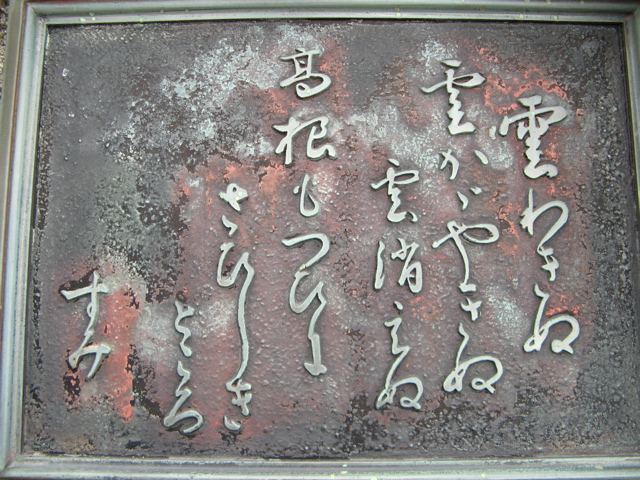 雲わきぬ
雲かゞやきぬ
雲消えぬ
高根もつひに
さひしき
ところ
すみ